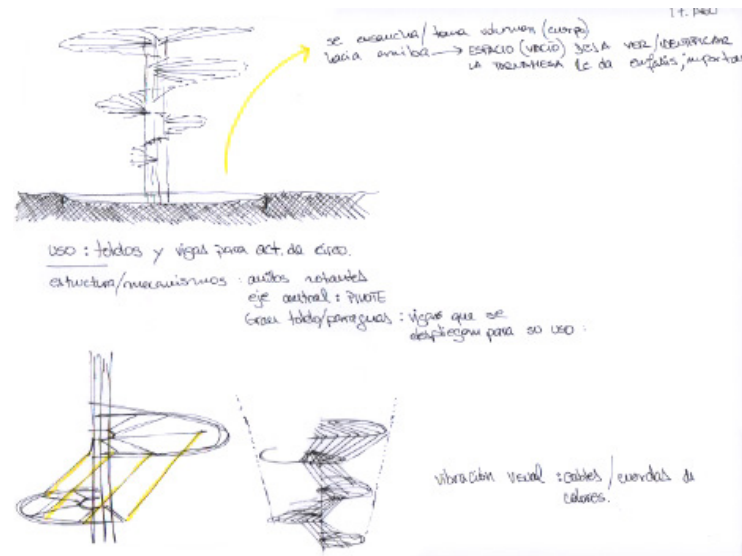 se ensancha/toma volumen (cuerpo)
hacia arriba → ESPACIO (VACIO) DEJA VER/IDENTIFICAR
LA TORNAMESA le da enfasis,
uso : toldos y vigas para act. de circo.
estructura/mecanismos : anillos rotantes
eje central : PIVOTE
Gran toldo/paraguas : vigas que se
despliegan para su uso
vibración visual : cables / cuerdas de
colores.